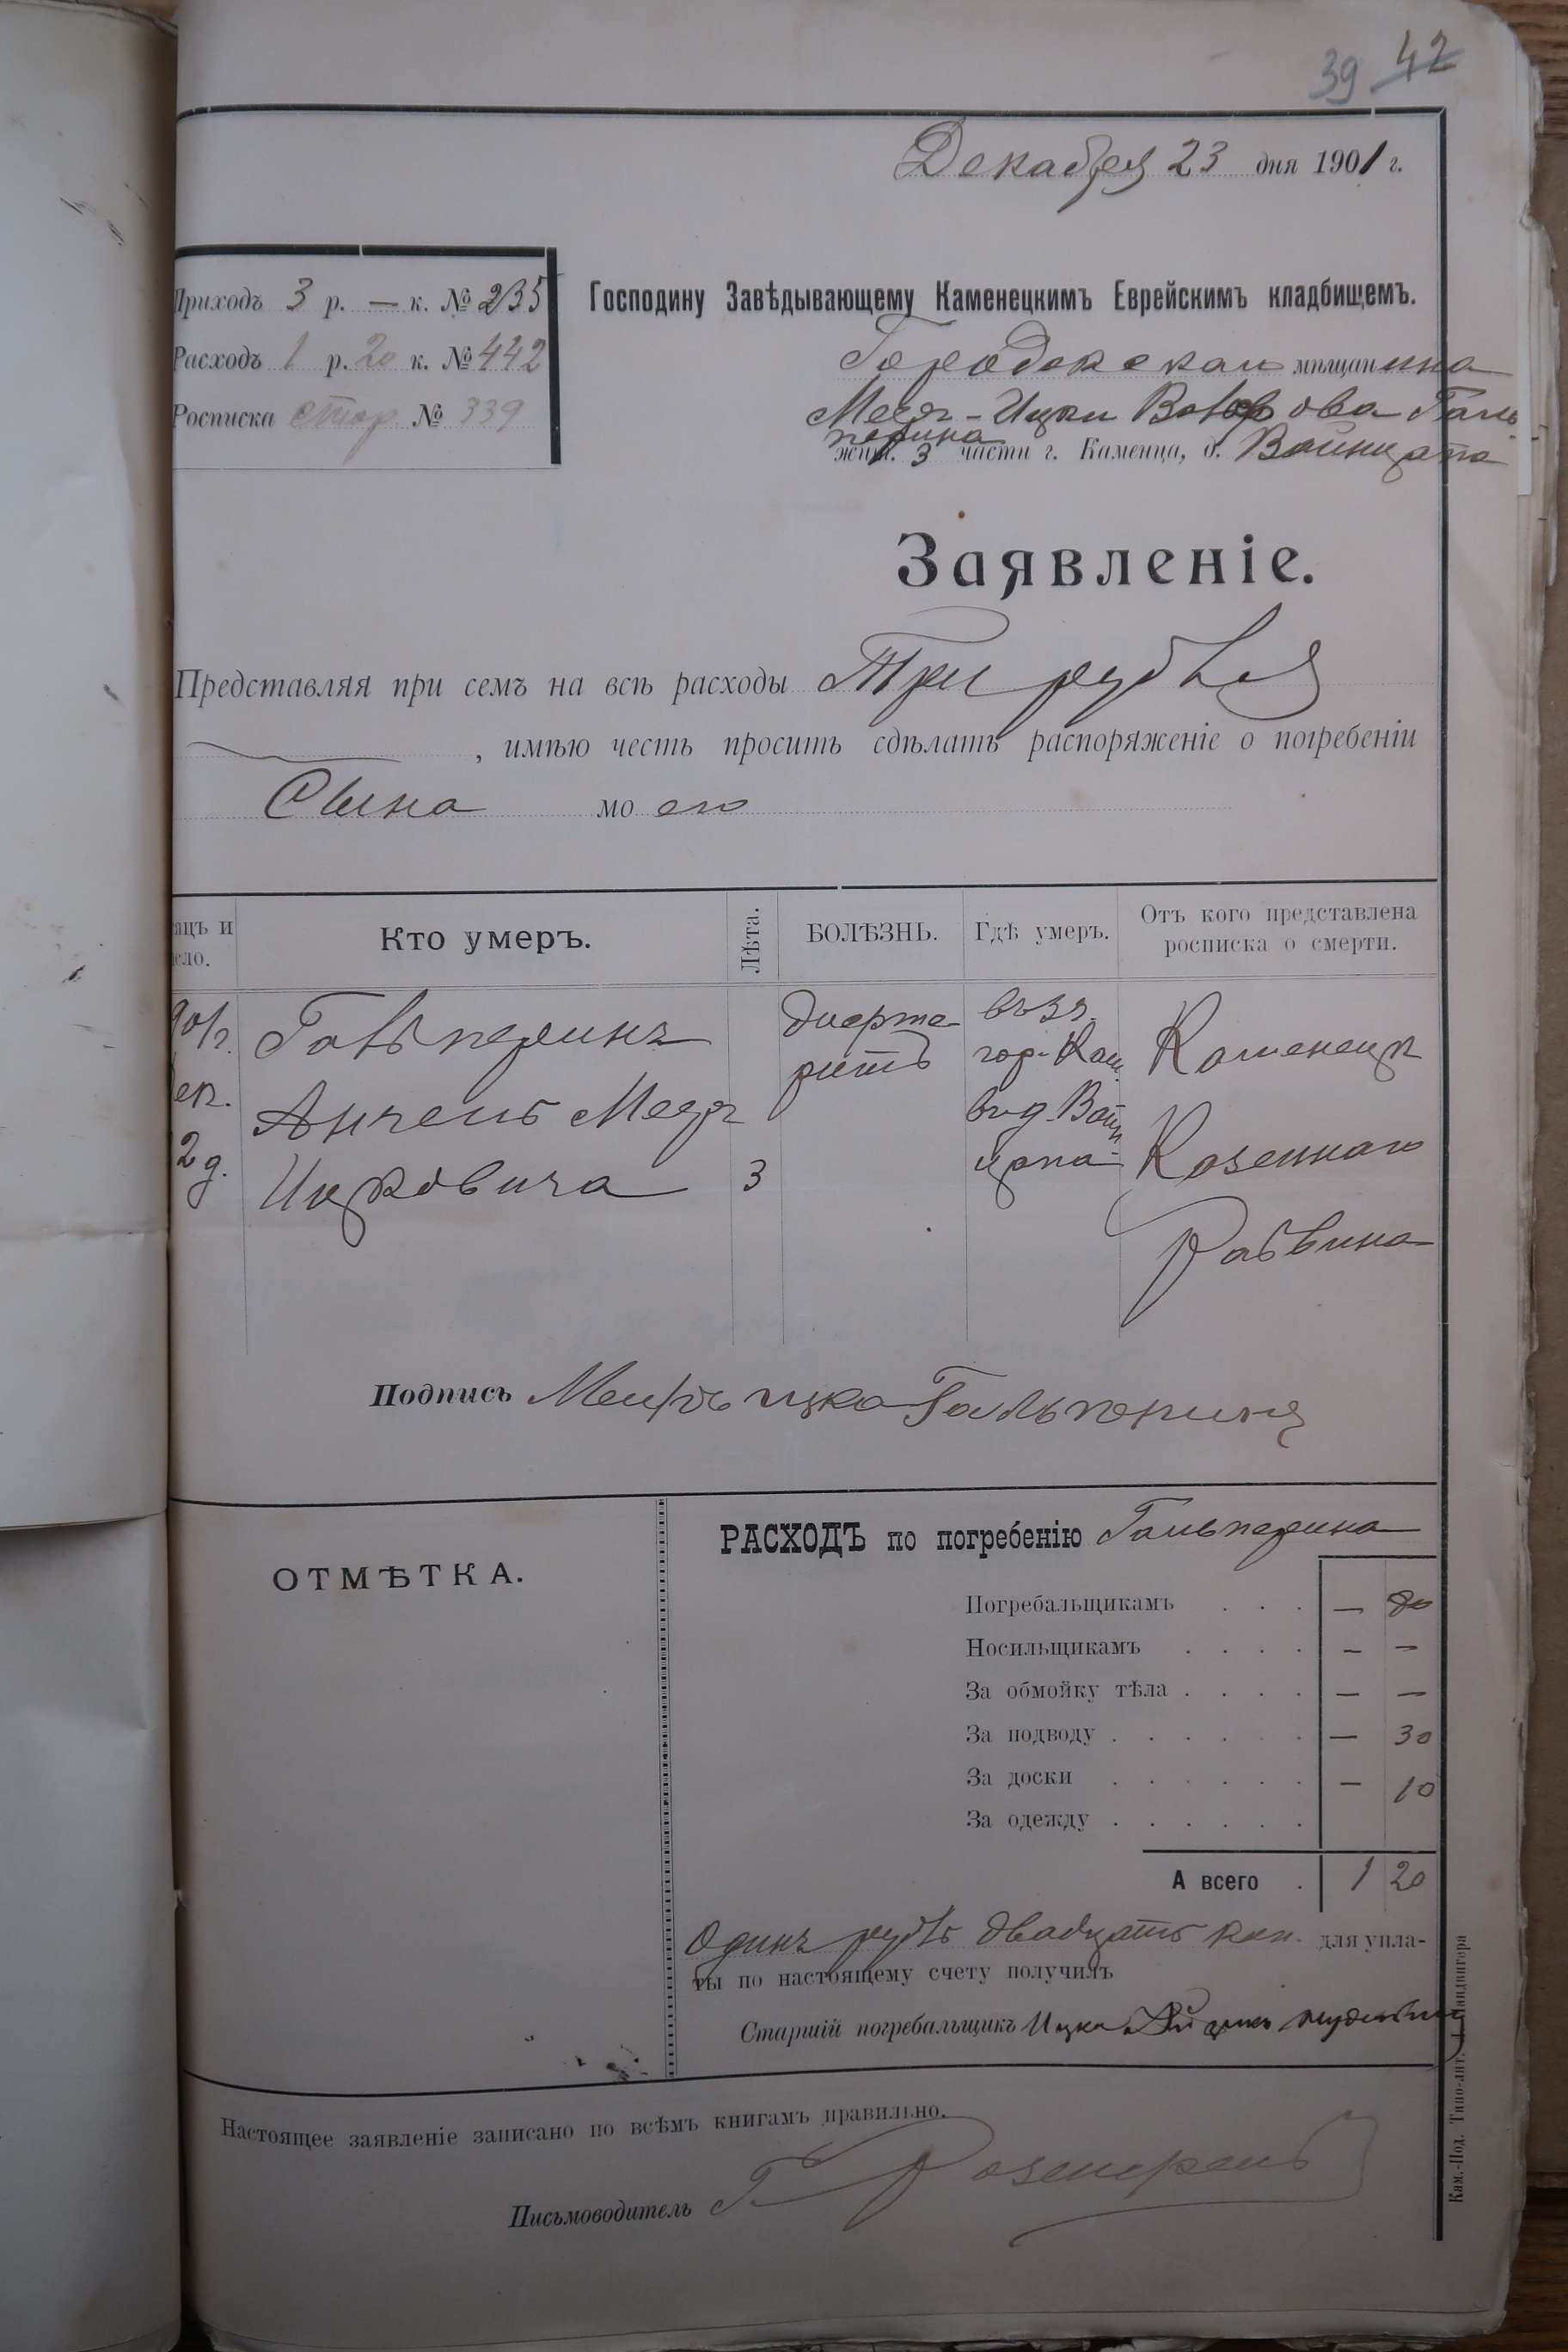 39 42
Декабря 23 дня 1901 г.
Приходъ 3 р. — к. № 235
Расходъ 1 р. 20 к. № 442
Росписка стор. № 339
Господину Завѣдывающему Каменецкимъ Еврейскимъ кладбищемъ.
мѣщанина
Ицки Галь
перина
жит. 3 части г. Каменца, д. Вайнцапа
Заявленіе.
Представляя при семъ на всѣ расходы Три рубля
, имѣю честь просить сдѣлать распоряженіе о погребеніи
Сына моего
яцъ и
сло.
Кто умеръ.
Лѣта.
БОЛѢЗНЬ.
Гдѣ умеръ.
Отъ кого представлена
росписка о смерти.
901г.
ек.
2 д.
Гальперинъ
Анчель Меер
Ицковича
3
дифте
ритъ
въ 3 ч.
гор. Кам.
въ д. Вайн
цапа
Каменецк
Казеннаго
Раввина
Подпись ицка Гальперинъ
ОТМѢТКА.
РАСХОДЪ по погребенію Гальперина
Погребальщикамъ . . . — 80
Носильщикамъ . . . . — —
За обмойку тѣла . . . . — —
За подводу . . . . . . — 30
За доски . . . . . . — 10
За одежду . . . . . .
А всего . 1 20
Одинъ рубль двадцать коп. для упла-
ты по настоящему счету получилъ
Старшій погребальщикъ Ицка
Настоящее заявленіе записано по всѣмъ книгамъ правильно.
Письмоводитель Г
Кам.-Под. Типо-лит.